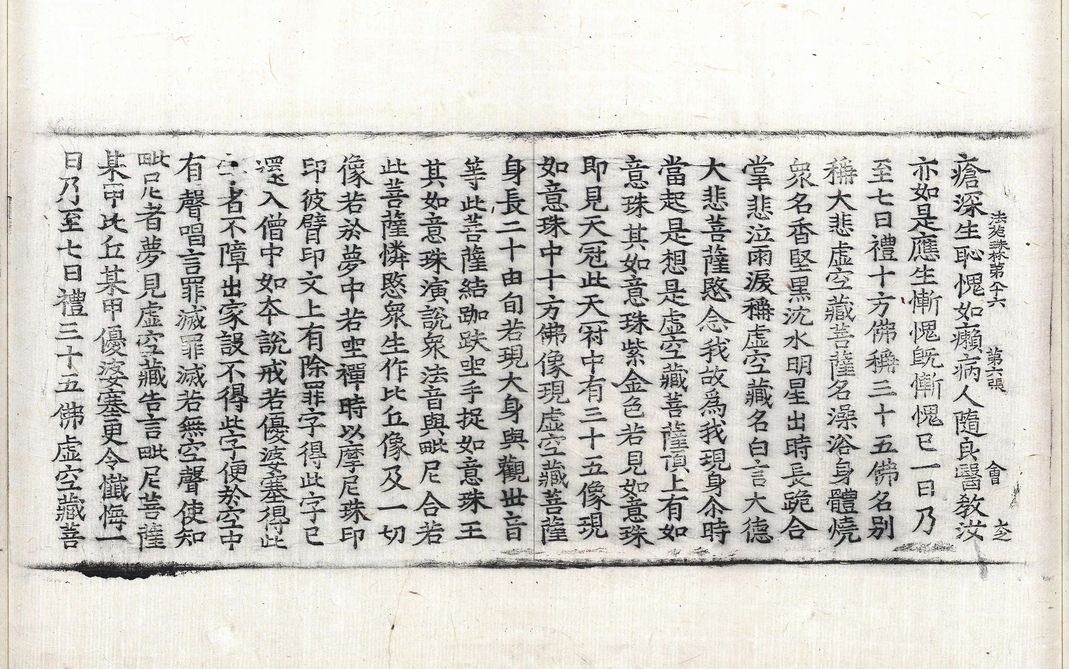 法苑珠林第八十六 第六張 會
瘡深生恥愧如癩病人隨良醫教汝
亦如是應生慚愧旣慚愧已一日乃
至七日禮十方佛稱三十五佛名别
稱大悲虛空藏菩薩名澡浴身體燒
衆名香堅黑沈水明星出時長跪合
掌悲泣雨淚稱虛空藏名白言大德
大悲菩薩愍念我故爲我現身尒時
當起是想是虛空藏菩薩頂上有如
意珠其如意珠紫金色若見如意珠
即見天冠此天冠中有三十五像現
如意珠中十方佛像現虛空藏菩薩
身長二十由旬若現大身與觀世音
等此菩薩結跏趺坐手捉如意珠王
其如意珠演說衆法音與毗尼合若
此菩薩憐愍衆生作比丘像及一切
像若於夢中若坐禪時以摩尼珠印
印彼臂印文上有除罪字得此字已
還入僧中如本說戒若優婆塞得此
字者不障出家設不得此字便於空中
有聲唱言罪滅罪滅若無空聲使知
毗尼者夢見虛空藏告言毗尼菩薩
某甲比丘某甲優婆塞更令懺悔一
日乃至七日禮三十五佛虛空藏菩